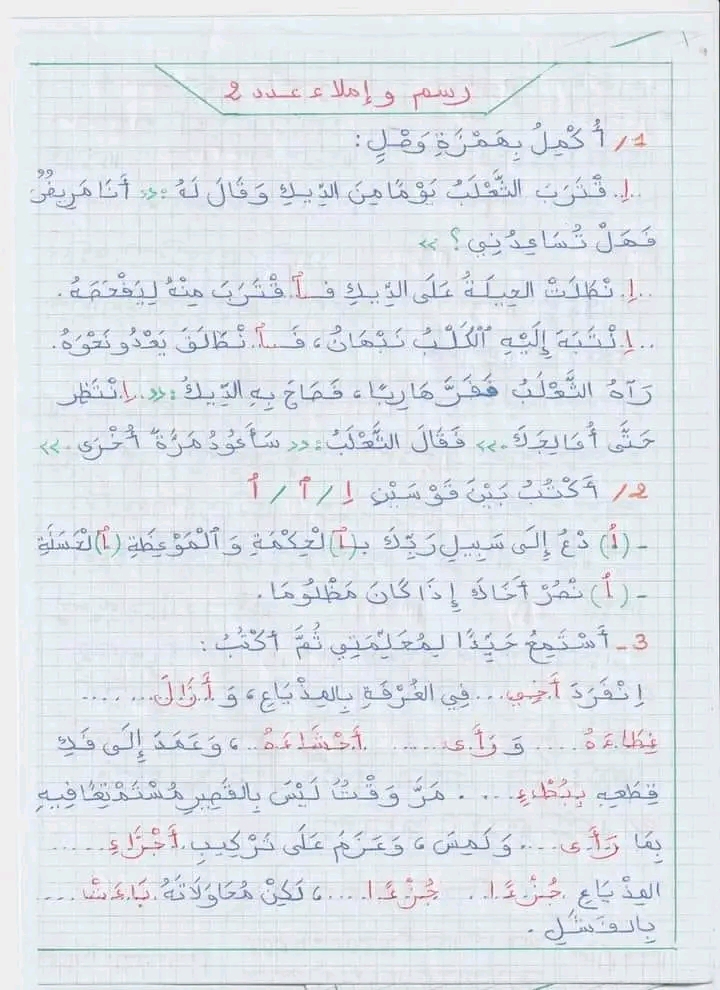 رسم وإملاء عدد 2
1/ أُكْمِلُ بِهَمْزَةِ وَصْلٍ:
..اِ. قْتَرَبَ الثَّعْلَبُ يَوْمًا مِنَ الدِّيكِ وَقَالَ لَهُ :«« أَنَا مَرِيضٌ
فَهَلْ تُسَاعِدُنِي؟ »»
..اِ. نْطَلَتْ الحِيلَةُ عَلَى الدِّيكِ فَـٱ.قْتَرَبَ مِنْهُ لِيَفْحَصَهُ.
..اِ.نْتَبَهَ إِلَيْهِ ٱلْكَلْبُ نَبْهَانُ، فَـٱ..نْطَلَقَ يَعْدُو نَحْوَهُ.
رَآهُ الثَّعْلَبُ فَفَرَّ هَارِبًا، فَصَاحَ بِهِ الدِّيكُ :««..اِنْتَظِر
حَتَّى أُعَالِجَكَ.»» فَقَالَ الثَّعْلَبُ:«« سَأَعُودُ مَرَّةً أُخْرَى.»»
2/ أَكْتُبُ بَيْنَ قَوْسَيْنِ اِ / ٱ / اُ
- (اُ) دْعُ إِلَى سَبِيلِ رَبِّكَ بِـ(ٱ)لْحِكْمَةِ وَ ٱلْمَوْعِظَةِ (ٱ)لْحَسَنَةِ
- (اُ) نْصُرْ أَخَاكَ إِذَا كَانَ مَظْلُومًا.
3- أَسْتَمِعُ جَيِّدًا لِمُعَلِّمَتِي ثُمَّ أَكْتُبُ:
اِنْفَرَدَ أَخِي... فِي الغُرْفَةِ بِالمِذْيَاعِ، وَ أَزَالَ......
غِطَاءَهُ.... وَ رَأَى...... أَحْشَاءَهُ..، وَعَمَدَ إِلَى فَكِّ
قِطَعِهِ بِبُطْءٍ... . مَرَّ وَقْتٌ لَيْسَ بِالقَصِيرِ مُسْتَمْتِعًا فِيهِ
بِمَا رَأَى.... وَلَمِسَ، وَعَزَمَ عَلَى تَرْكِيبِ أَجْزَاءِ.....
المِذْيَاعِ جُزْءًا.. جُزْءًا....، لَكِنْ مُحَاوَلَاتَهُ بَاءَتْ....
بِالفَشَلِ.